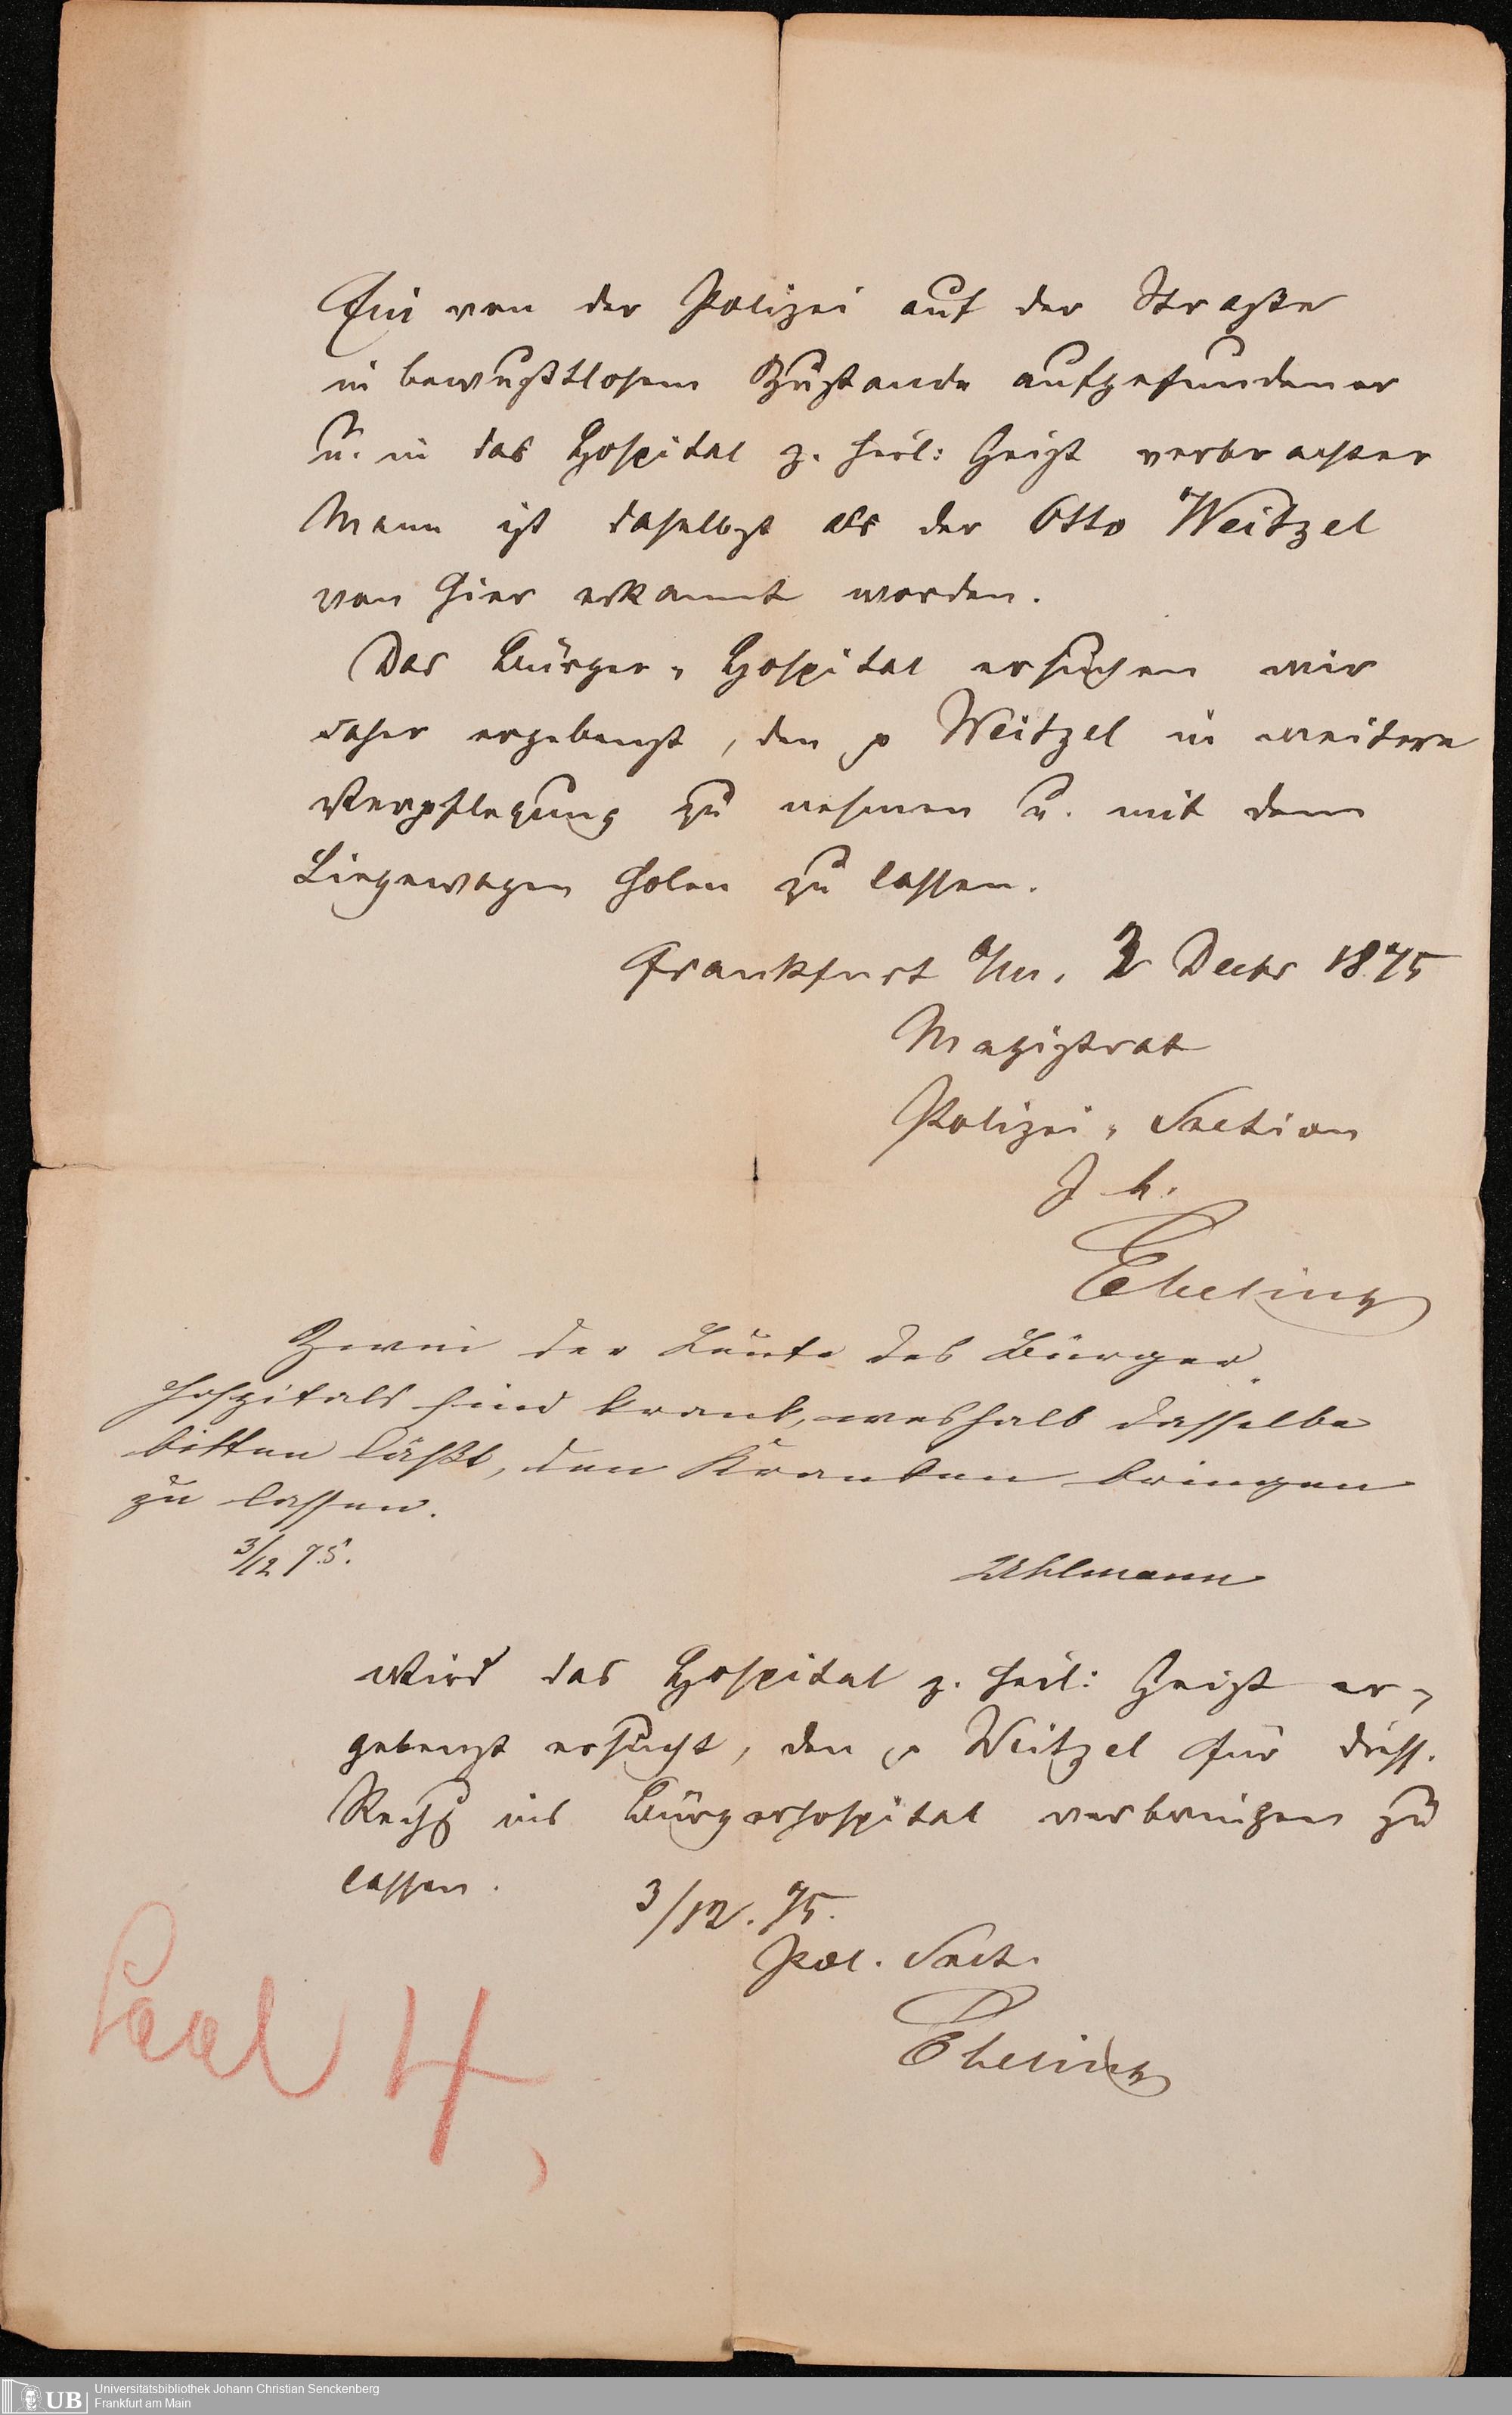 Ein von der Polizei auf der Straße
in bewußtlosem Zustande aufgefundener
u. in das Hospital z. heil: Geist verbrachter
Mann ist daselbst als der Otto Weitzel
von hier erkannt worden.
Das Bürger-Hospital ersuchen wir
daher ergebenst, den p Weitzel in weitere
Verpflegung zu nehmen u. mit dem
Liegewagen holen zu lassen.
Frankfurt a/m. 3 Decbr 1875
Magistrat
Polizei-Section
Ebeling
Zwei der Leute des Bürger-
hospitals sind krank, weshalb dasselbe
bitten läßt, den Kranken bringen
zu lassen.
3/12 75.
Uhlmann
Wird das Hospital z. heil: Geist er-
gebenst ersucht, den p Weitzel für diess.
Rechg ins Bürgerhospital verbringen zu
lassen.
3/12. 75.
Pol. Sect.
Ebeling
Saal 4,
UB
Universitätsbibliothek Johann Christian Senckenberg
Frankfurt am Main